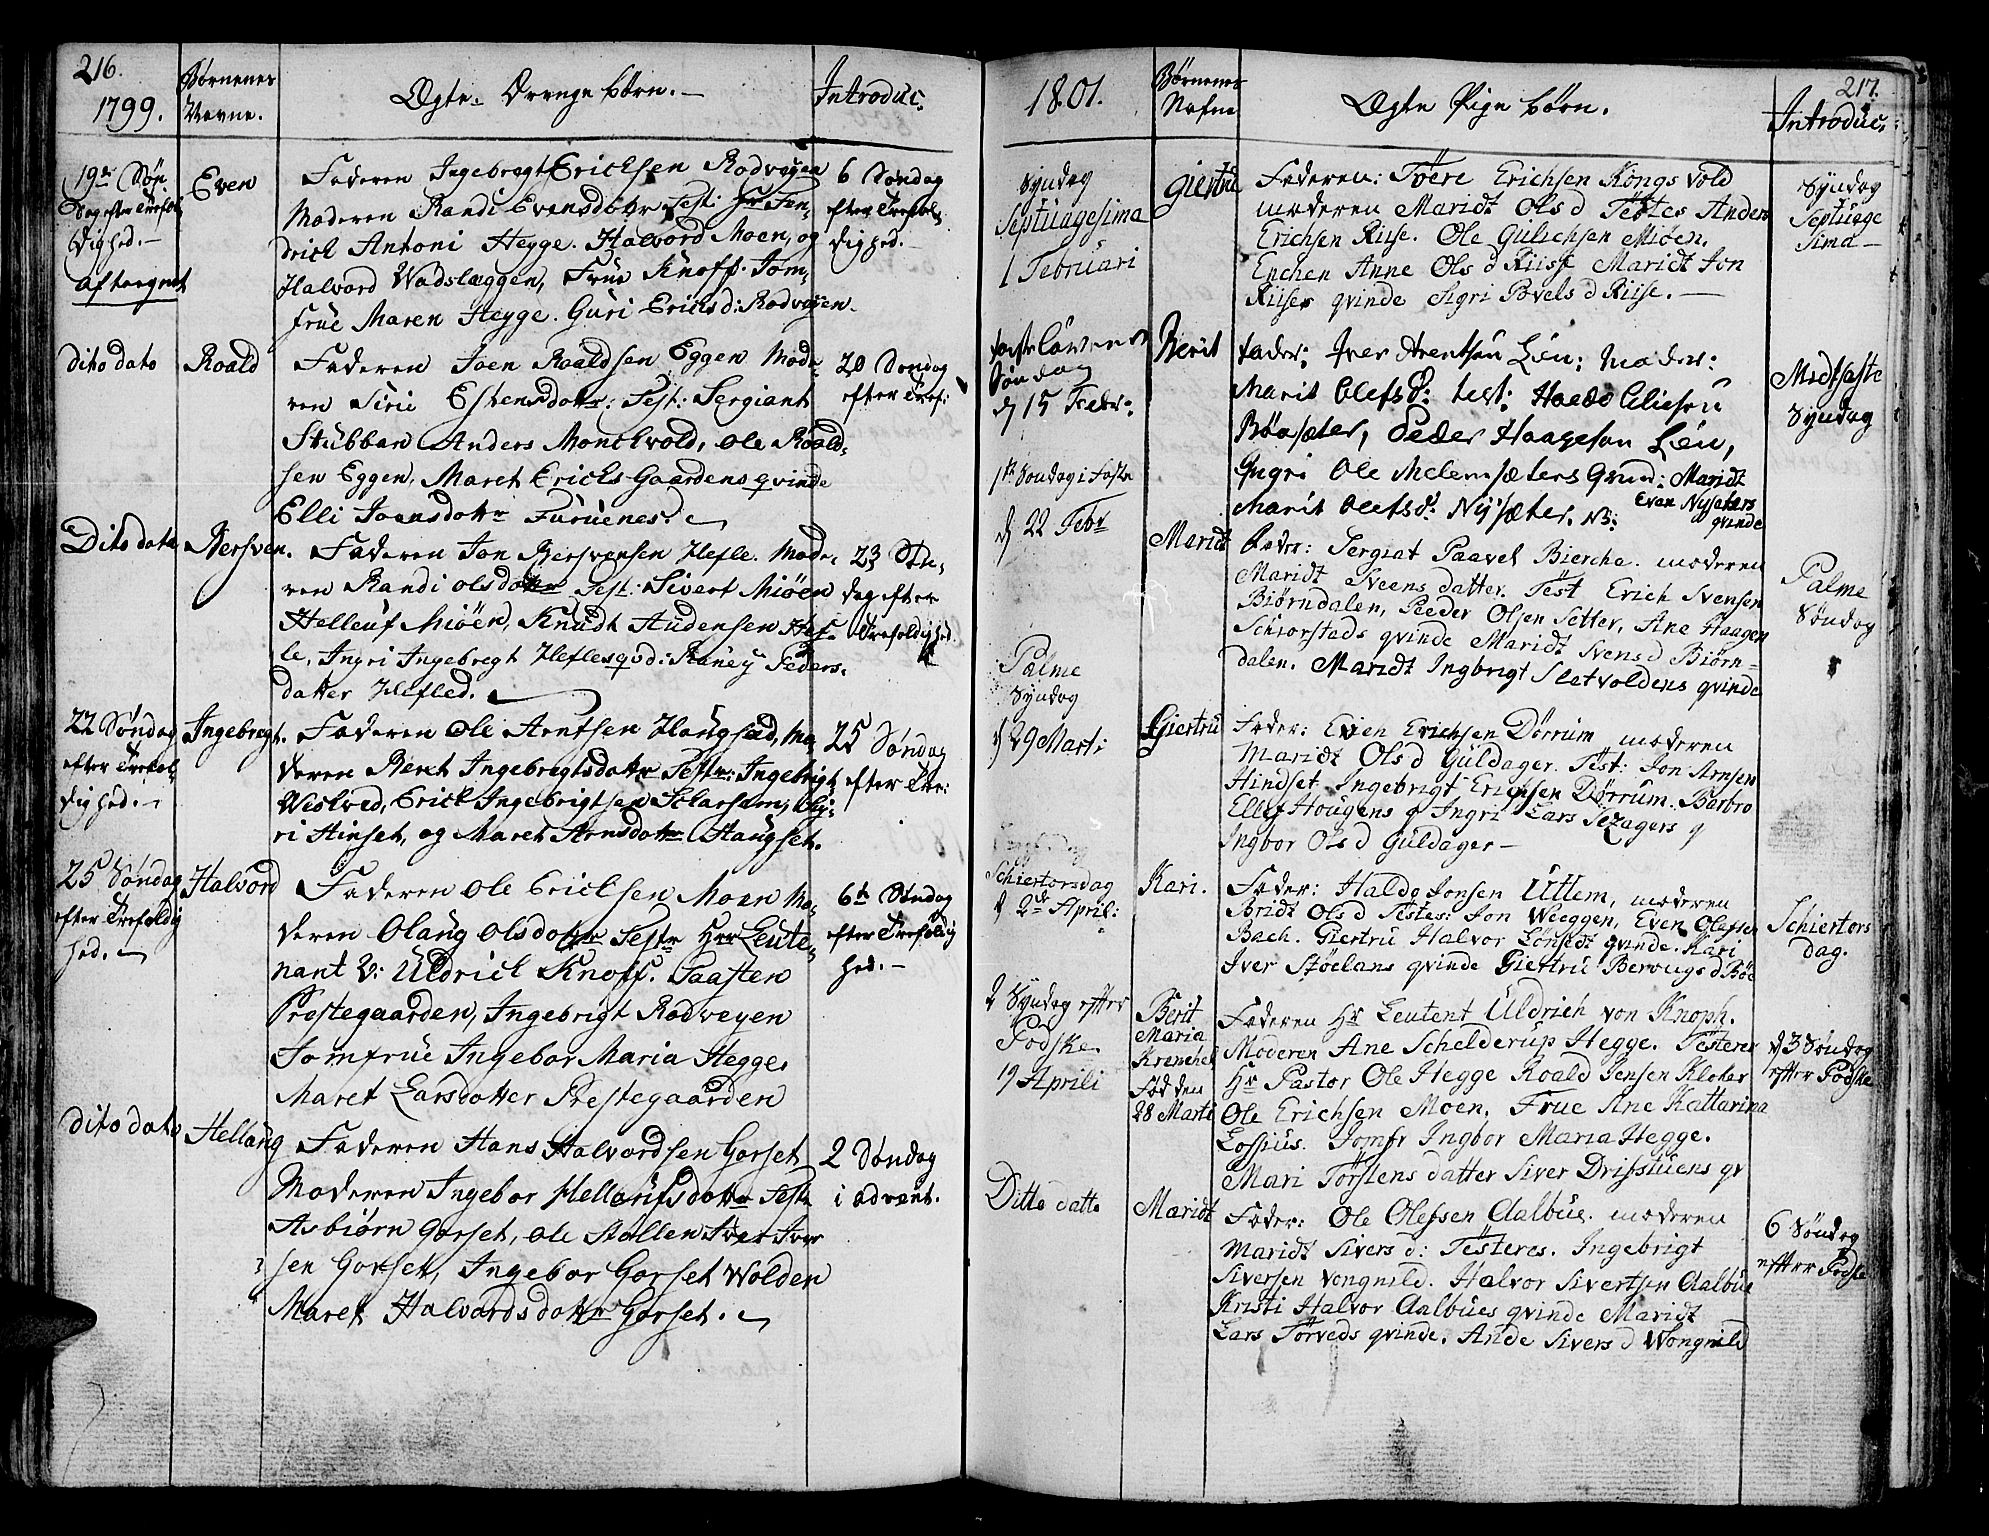 216.
1799.
Børnenes
Navne.
Ægte Drenge børn.
Introduc:
19de Søn
dag efter Trefol
dighed.
aftegnet
Even
Faderen Ingebregt Ericksen Rodveyen
Moderen Randi Evensdottr Test: Hr Fen-
drick Antoni Hegge. Halvord Moen, og
Halvord Wadslæggen, Frue Knoff. Jom-
frue Maren Hegge. Guri Ericksd: Rodveyen.
6 Søndag
efter Trefol-
dighed.
dito dato
Roald
Faderen Joen Roaldsen Eggen Mode-
ren Siri Estensdottr: Test: Sergiant
Stubban Anders Monckvold, Ole Roald-
sen Eggen, Maret Ericks Gaardens qvinde
Elli Joensdottr Furuenes.
20 Søndag
efter Tref:
Dito dato
Bersven.
Faderen Jon Bersvensen Hefle. Mode-
ren Randi Olsdottr Test: Sivert Miøen
Helleuf Miøen, Knudt Audensen Hef-
le, Ingri Ingebregt Hefles qvd: Raney Peders-
datter Hefled.
23 Søn-
dag efter
Trefoldighed.
22 Søndag
efter Trefol-
dighed.
Ingebregt.
Faderen Ole Arntsen Haugsæd, Mo-
deren Beret Ingebregtsdottr Testr: Ingebrigt
Weslved, Erick Ingebrigtsen Sckarsem, Gu-
ri Hinset, og Maret Arnsdottr Haugset.
25 Søndag
efter Tre:
25 Søndag
efter Trefoldig
hed.
Halvord
Faderen Ole Ericksen Moen Mo-
deren Olaug Olsdottr Testr Herr Leute-
nant v: Uldrick Knoff. Paasten
Prestegaarden, Ingebrigt Rodveyen
Jomfrue Ingebor Maria Hegge,
Maret Larsdotter Prestegaarden
6te Søndag
efter Trefoldig
hed.
dito dato
Hellaug
Faderen Hans Halvordsen Gorset
Moderen Ingebor Helleufsdottr Testr
Asbiørn Gorset, Ole Stallen Iver Iver
sen Gorset, Ingebor Gorset Wolden
Maret Halvordsdottr Gorset.
2 Søndag
i advent.
217.
1801.
Børnenes
Nafne
Ægte Pige børn.
Introduc:
Syndag
Septuagesima
1 Februari
Giertru
Faderen: Töere Erichsen Kongsvold
moderen Maridt Ols d Testes Anders
Erichsen Riise. Ole Gulichsen Miøen.
Enchen Anne Ols d Riise Maridt Jon
Riises qvinde Sigri Povels d Riise.
Syndag
Septuage
sima
fastelavens
Søndag
d 15 Febr:
Berit
fader: Iver Arentsøn Løn: moder:
Marit Olefsd: test:
Bøesæter, Peder Haagesøn Løn,
Ingri Ole Melemsæters Qvind: Maridt
Marit Olefsd: Nysæter. NB: Even Nysæters
qvinde
Midfaste
Syndag
1te Søndag i faste
d 22 Febr
Maridt
Fader: Sergiat Paavel Bierche. moderen
Maridt Sveens datter. Test Erich Svensen
Biørndalen, Peeder Olsen Setter, Ane Haagen
Schiorstads qvinde Maridt Svens d Biørn-
dalen. Maridt Ingbrigt Sletvoldens qvinde
Palme
Søndag
Palme
Syndag
d 29 Marti
Giertru
Fader: Even Erichsen Dørrum moderen
Maridt Ols d Guldager. Test: Jon Arnsen
Hindset Ingebrigt Erichsen Dørrum. Barbro
Ellef Hougens q Ingri Lars Sezagers q
Ingbor Ols d Guldager
Schiertorsdag
d 2de April:
Kari.
Fader: Haldo Jonsen Uttem, moderen
Bridt Ols d Testes: Jon Weeggen, Even Olafsen
Bach. Giertru Halvor Lønsedt qvinde. Kari
Iver Støelans qvinde Giertru Berougs d Bøe
Schiertors
dag.
2 Syndag efter
Podske
19 Aprili
Berit
Maria
Krenchel
Fød den
28 Marti
Faderen Hr Leutent Uldrich von Knoph.
Moderen Ane Schelderup Hegge. Testeres
Hr Pastor Ole Hegge Roald Jensen Kloker
Ole Erichsen Moen. Frue Ane Kattarina
Lossius. Jomfr Ingbor Maria Hegge.
Mari Törstens datter Siver Drifstuens qv
d 3 Søndag
efter Podske
Ditto datto
Maridt
Fader: Ole Olefsen Aalbue. moderen
Maridt Sivers d: Testeres. Ingebrigt
Siversen Vongnild. Halvor Sivertsen Aalbue
Kristi Halvor Aalbues qvinde Maridt
Lars Tørveds qvinde. Ande Sivers d Wongnild
6 Søndag
efter Podske